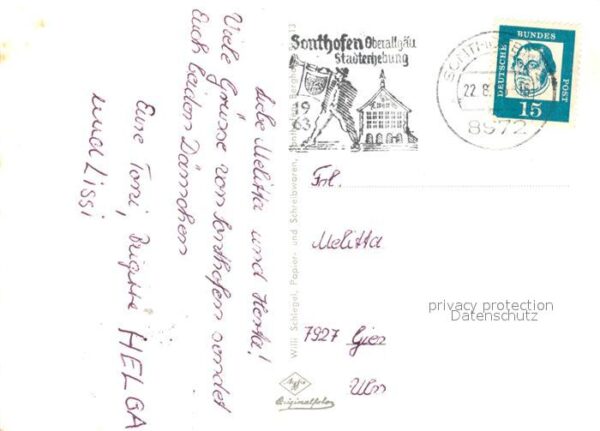 Liebe Melitta und Herta!
Viele Grüsse von Sonthofen sendet
Euch beiden Dämchen
Eure Toni, Brigitte HELGA
und Lissi
Sonthofen Oberallgäu
Stadterhebung
1963
22.8.
8972
DEUTSCHE BUNDES POST
15
Frl.
Melitta
7927
Ulm
privacy protection
Datenschutz
Willi Schlegel, Papier- und Schreibwaren,
Agfa
Originalfoto